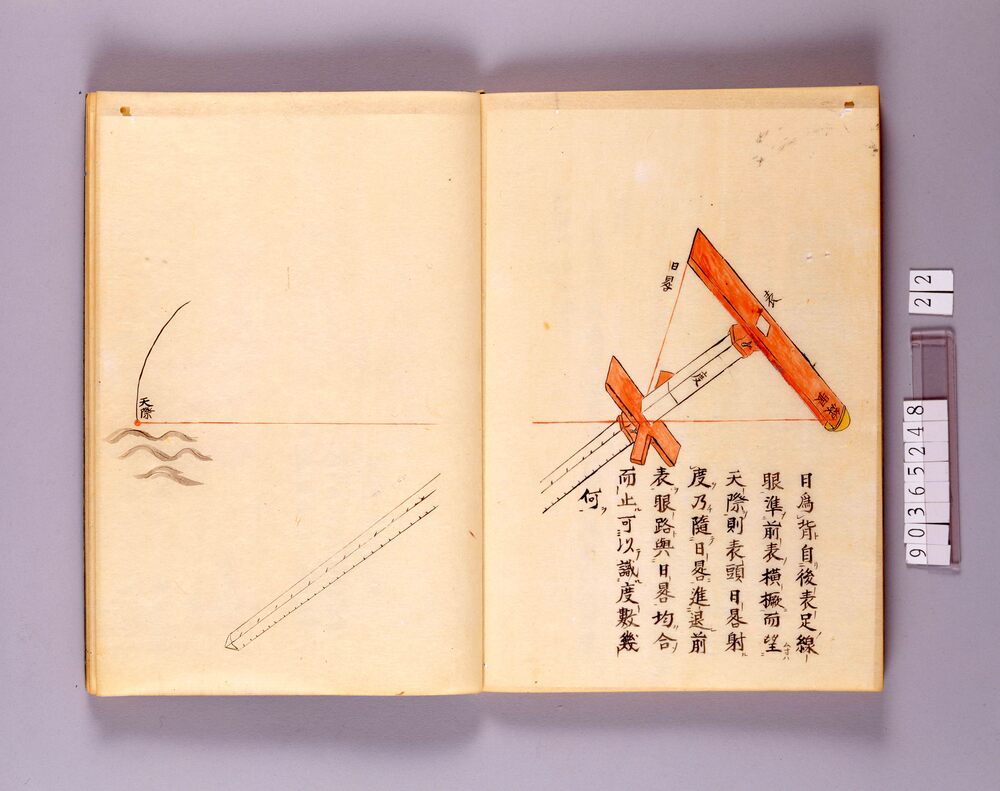 日晷
表
度
線
眼
日爲背自後表足線
眼準前表橫橛而望
天際則表頭日晷射
度乃隨日晷進退前
表眼路與日晷均合
而止可以識度數幾
何
天際
22
22
90365248